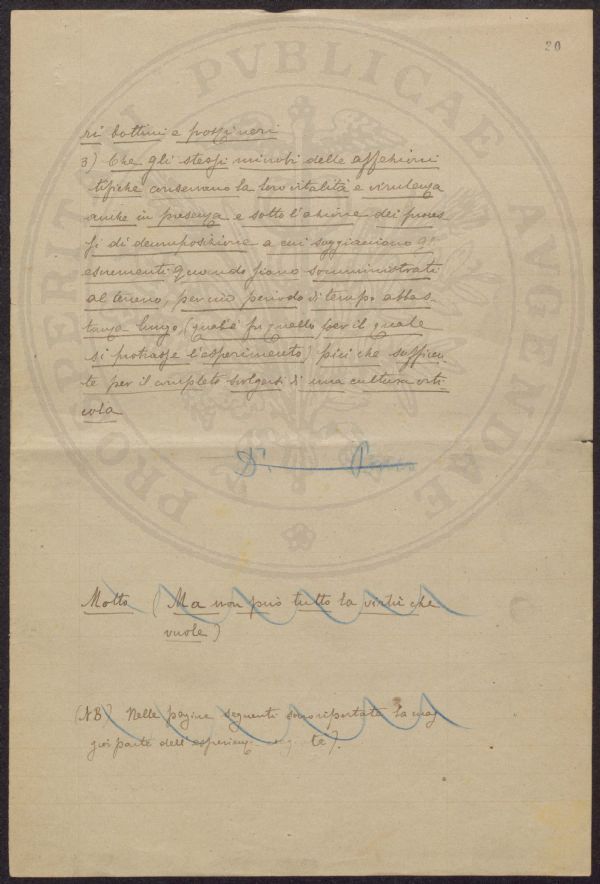 20
ri bottini e pozzi neri
3) Che gli stessi microbi delle affezioni
tifiche conservano la loro vitalità e virulenza
anche in presenza e sotto l'azione dei proces
si di decomposizione a cui soggiacciono gl'
escrementi quando siano somministrati
al terreno, per un periodo di tempo abbas-
tanza lungo (qual'è fu quello per il quale
si protrasse l'esperimento) più che sufficien
te per il completo svolgersi di una cultura orti
cola
Dr.
Motto (Ma non può tutto la virtù che
vuole)
(NB) Nelle pagine seguenti sono riportate la mag
gior parte dell'esperienze).
PRO VERITAT PVBLICAE AGENDAE